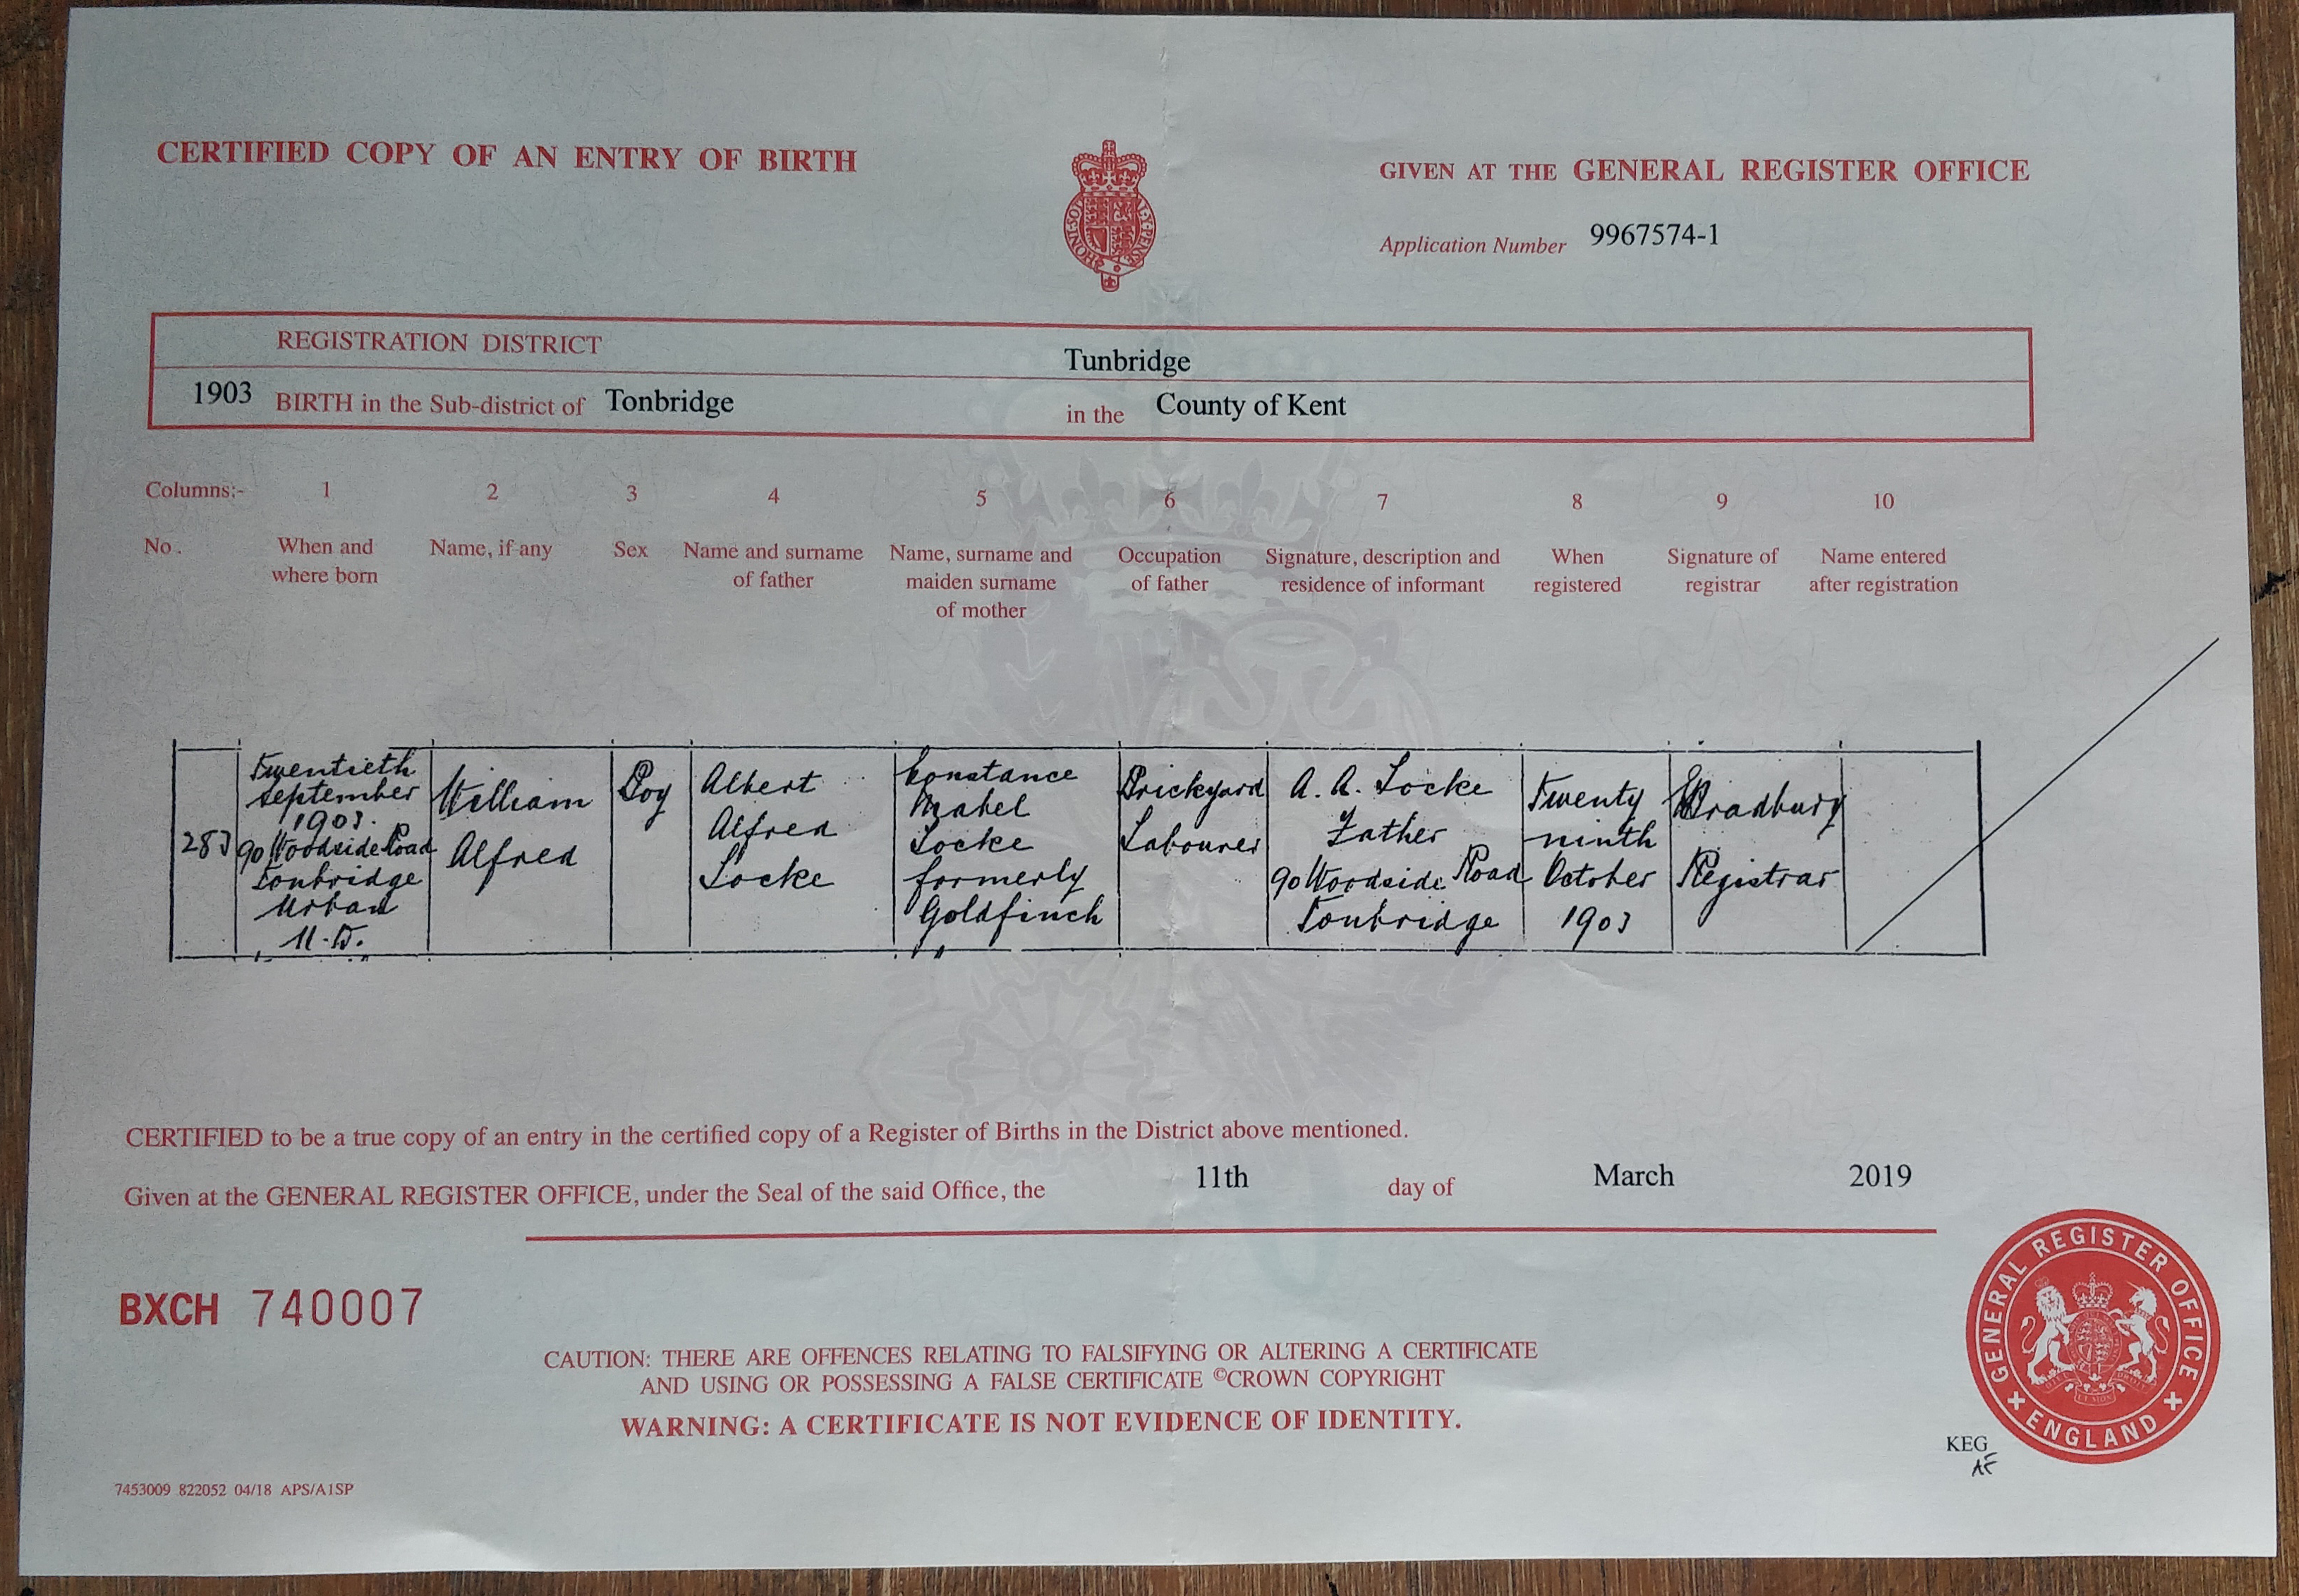 CERTIFIED COPY OF AN ENTRY OF BIRTH
GIVEN AT THE GENERAL REGISTER OFFICE
Application Number 9967574-1
REGISTRATION DISTRICT Tunbridge
1903 BIRTH in the Sub-district of Tonbridge in the County of Kent
Columns:- 1 2 3 4 5 6 7 8 9 10
No. When and where born
Name, if any
Sex
Name and surname of father
Name, surname and maiden surname of mother
Occupation of father
Signature, description and residence of informant
When registered
Signature of registrar
Name entered after registration
283
Twentieth
September
1903.
90 Woodside Road
Tonbridge
Urban
U.D.
William
Alfred
Boy
Albert
Alfred
Locke
Constance
Mabel
Locke
formerly
Goldfinch
Brickyard
Labourer
A. A. Locke
Father
90 Woodside Road
Tonbridge
Twenty
ninth
October
1903
Bradbury
Registrar
CERTIFIED to be a true copy of an entry in the certified copy of a Register of Births in the District above mentioned.
Given at the GENERAL REGISTER OFFICE, under the Seal of the said Office, the 11th day of March 2019
BXCH 740007
CAUTION: THERE ARE OFFENCES RELATING TO FALSIFYING OR ALTERING A CERTIFICATE
AND USING OR POSSESSING A FALSE CERTIFICATE ©CROWN COPYRIGHT
WARNING: A CERTIFICATE IS NOT EVIDENCE OF IDENTITY.
GENERAL REGISTER OFFICE
ENGLAND
KEG
AF
7453009 822052 04/18 APS/A1SP